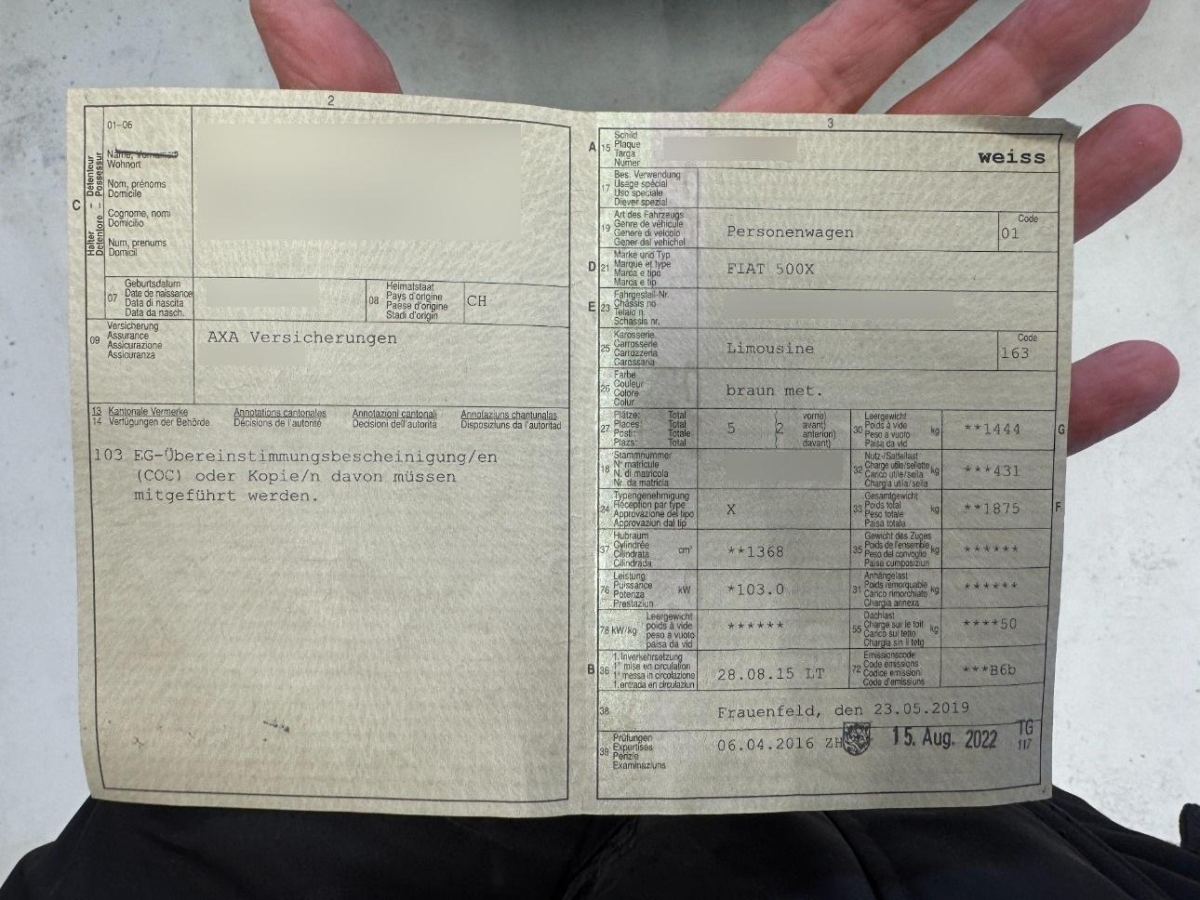 2
01-06
Name, Vornamen
Wohnort
Nom, prénoms
Domicile
Cognome, nomi
Domicilio
Num, prenums
Domicil
C
Halter – Détenteur
Detentore – Possessur
07
Geburtsdatum
Date de naissance
Data di nascita
Data da nasch.
08
Heimatstaat
Pays d'origine
Paese d'origine
Stadi d'origin
CH
09
Versicherung
Assurance
Assicurazione
Assicuranza
AXA Versicherungen
13 Kantonale Vermerke Annotations cantonales Annotazioni cantonali Annotaziuns chantunalas
14 Verfügungen der Behörde Décisions de l'autorité Decisioni dell'autorità Disposiziuns da l'autoritad
103 EG-Übereinstimmungsbescheinigung/en
(COC) oder Kopie/n davon müssen
mitgeführt werden.
3
A 15
Schild
Plaque
Targa
Numer
weiss
17
Bes. Verwendung
Usage spécial
Uso speciale
Diever spezial
19
Art des Fahrzeugs
Genre de véhicule
Genere di veicolo
Gener dal vehichel
Personenwagen
Code
01
D 21
Marke und Typ
Marque et type
Marca e tipo
Marca e tip
FIAT 500X
E 23
Fahrgestell-Nr.
Châssis no
Telaio n.
Schassis nr.
25
Karosserie
Carrosserie
Carrozzeria
Carossaria
Limousine
Code
163
26
Farbe
Couleur
Colore
Colur
braun met.
27
Plätze: Total vorne)
Places: Total avant)
Posti: Totale anteriori)
Plazs: Total davant)
5 (2
30
Leergewicht
Poids à vide
Peso a vuoto
Paisa da vid
kg
**1444
G
18
Stammnummer
N° matricule
N. di matricola
Nr. da matricla
32
Nutz-/Sattellast
Charge utile/sellette
Carico utile/sella
Chargia utila/sella
kg
***431
24
Typengenehmigung
Réception par type
Approvazione del tipo
Approvaziun dal tip
X
33
Gesamtgewicht
Poids total
Peso totale
Paisa totala
kg
**1875
F
37
Hubraum
Cylindrée
Cilindrata
Cilindrada
cm³
**1368
35
Gewicht des Zuges
Poids de l'ensemble
Peso del convoglio
Paisa cumposiziun
kg
******
76
Leistung
Puissance
Potenza
Prestaziun
kW
*103.0
31
Anhängelast
Poids remorquable
Carico rimorchiato
Chargia annexa
kg
******
78 kW/kg
Leergewicht
poids à vide
peso a vuoto
paisa da vid
******
55
Dachlast
Charge sur le toit
Carico sul tetto
Chargia sin il tetg
kg
****50
B 36
1. Inverkehrsetzung
1re mise en circulation
1a messa in circolazione
1. entrada en circulaziun
28.08.15 LT
72
Emissionscode
Code émissions
Codice emissioni
Code d'emissiuns
***B6b
38
Frauenfeld, den 23.05.2019
39
Prüfungen
Expertises
Perizie
Examinaziuns
06.04.2016 ZH
15. Aug. 2022
TG
117